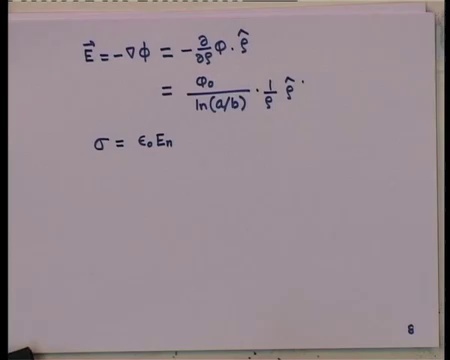 E⃗ = -∇ϕ = - ∂/∂ρ ϕ · ρ̂
= Φ₀/ln(a/b) · 1/ρ ρ̂ ·
σ = ε₀ En
8